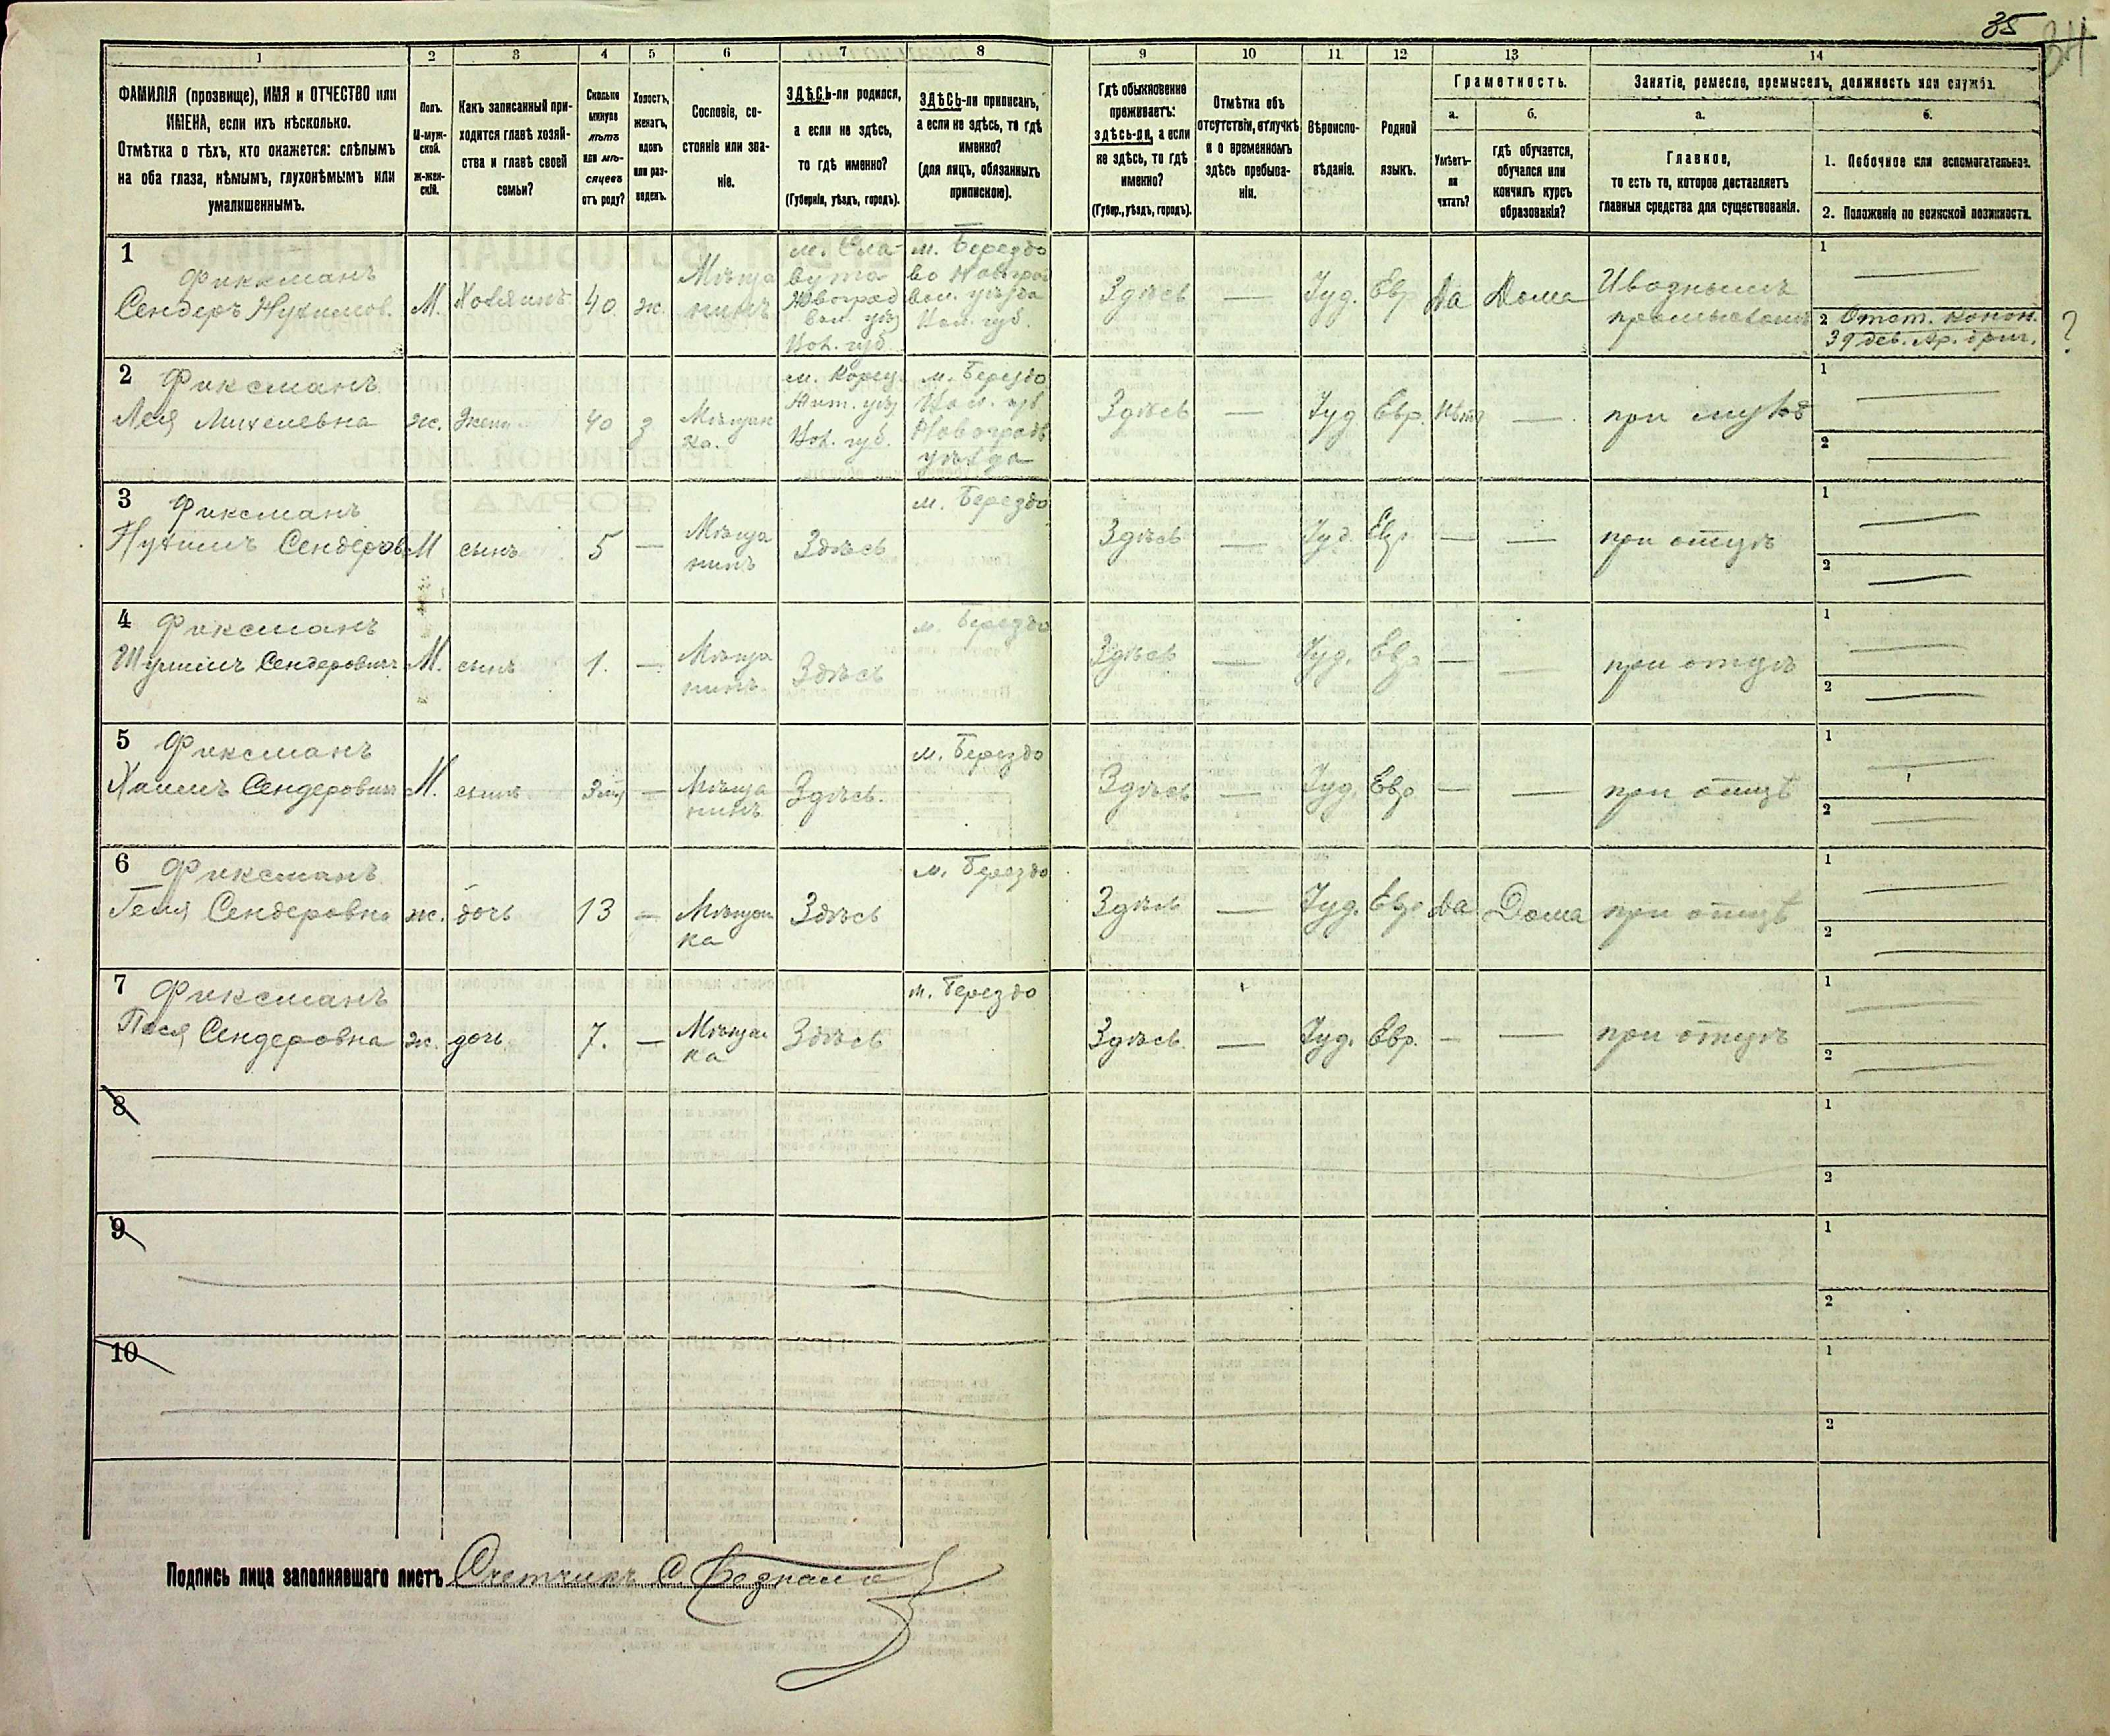 35
34
1 2 3 4 5 6 7 8 9 10 11 12 13 14
ФАМИЛІЯ (прозвище), ИМЯ и ОТЧЕСТВО или
ИМЕНА, если ихъ нѣсколько.
Отмѣтка о тѣхъ, кто окажется: слѣпымъ
на оба глаза, нѣмымъ, глухонѣмымъ или
умалишеннымъ.
Полъ.
М-муж-
ской.
Ж-жен-
скій.
Какъ записанный при-
ходится главѣ хозяй-
ства и главѣ своей
семьи?
Сколько
минуло
лѣтъ
или мѣ-
сяцевъ
отъ роду?
Холостъ,
женатъ,
вдовъ
или раз-
веденъ.
Сословіе, со-
стояніе или зва-
ніе.
ЗДѢСЬ-ли родился,
а если не здѣсь,
то гдѣ именно?
(Губернія, уѣздъ, городъ).
ЗДѢСЬ-ли приписанъ,
а если не здѣсь, то гдѣ
именно?
(для лицъ, обязанныхъ
припискою).
Гдѣ обыкновенно
проживаетъ:
здѣсь-ли, а если
не здѣсь, то гдѣ
именно?
(Губер., уѣздъ, городъ).
Отмѣтка объ
отсутствіи, отлучкѣ
и о временномъ
здѣсь пребыва-
ніи.
Вѣроиспо-
вѣданіе.
Родной
языкъ.
Грамотность.
а.
Умѣетъ-
ли
читать?
б.
гдѣ обучается,
обучался или
кончилъ курсъ
образованія?
Занятіе, ремесло, промыселъ, должность или служба.
а.
Главное,
то есть то, которое доставляетъ
главныя средства для существованія.
б.
1. Побочное или вспомогательное.
2. Положеніе по воинской повинности.
1
Фиксманъ
Сендеръ Нухимов.
М.
Хозяинъ
40
ж.
Мѣща
нинъ
м. Сла-
вута
Новоград
вол. уѣз
Вол. губ.
м. Берездо
во Новоград
вол. уѣзда
Вол. губ.
Здѣсь
—
Іуд.
Евр
Да
Дома
Извознымъ
промысломъ
1 —
2
2 Фиксманъ
Лея Михелевна
ж.
жена
40
з
Мѣщан
ка.
м. Корец
уѣз
Вол. губ.
м. Берездо
Вол. губ.
Новоградъ
уѣзда
Здѣсь
—
Іуд
Евр.
Нѣтъ
—
при мужѣ
1 —
2 —
3 Фиксманъ
Нухимъ Сендеров
М
сынъ
5
—
Мѣща
нинъ
Здѣсь
м. Берездо
Здѣсь
—
Іуд.
Евр.
—
—
при отцѣ
1 —
2 —
4 Фиксманъ
Сендеровичъ
М.
сынъ
1.
—
Мѣща
нинъ
Здѣсь
м. Берездо
Здѣсь
—
Іуд.
Евр.
—
—
при отцѣ
1 —
2 —
5 Фиксманъ
Хаимъ Сендеровичъ
М.
сынъ
—
Мѣща
нинъ
Здѣсь.
м. Берездо
Здѣсь
—
Іуд.
Евр
—
—
при отцѣ
1 —
2 —
6 Фиксманъ
Сендеровна
ж.
дочь
13
—
Мѣщан
ка
Здѣсь
м. Берездо
Здѣсь
—
Іуд.
Евр
Да
Дома
при отцѣ
1 —
2 —
7 Фиксманъ
Пася Сендеровна
ж.
дочь
7.
—
Мѣщан
ка
Здѣсь
м. Берездо
Здѣсь.
—
Іуд.
Евр.
—
—
при отцѣ
1 —
2 —
8
1
2
9
1
2
10
1
2
?
Подпись лица заполнявшаго листъ Счетчикъ С.